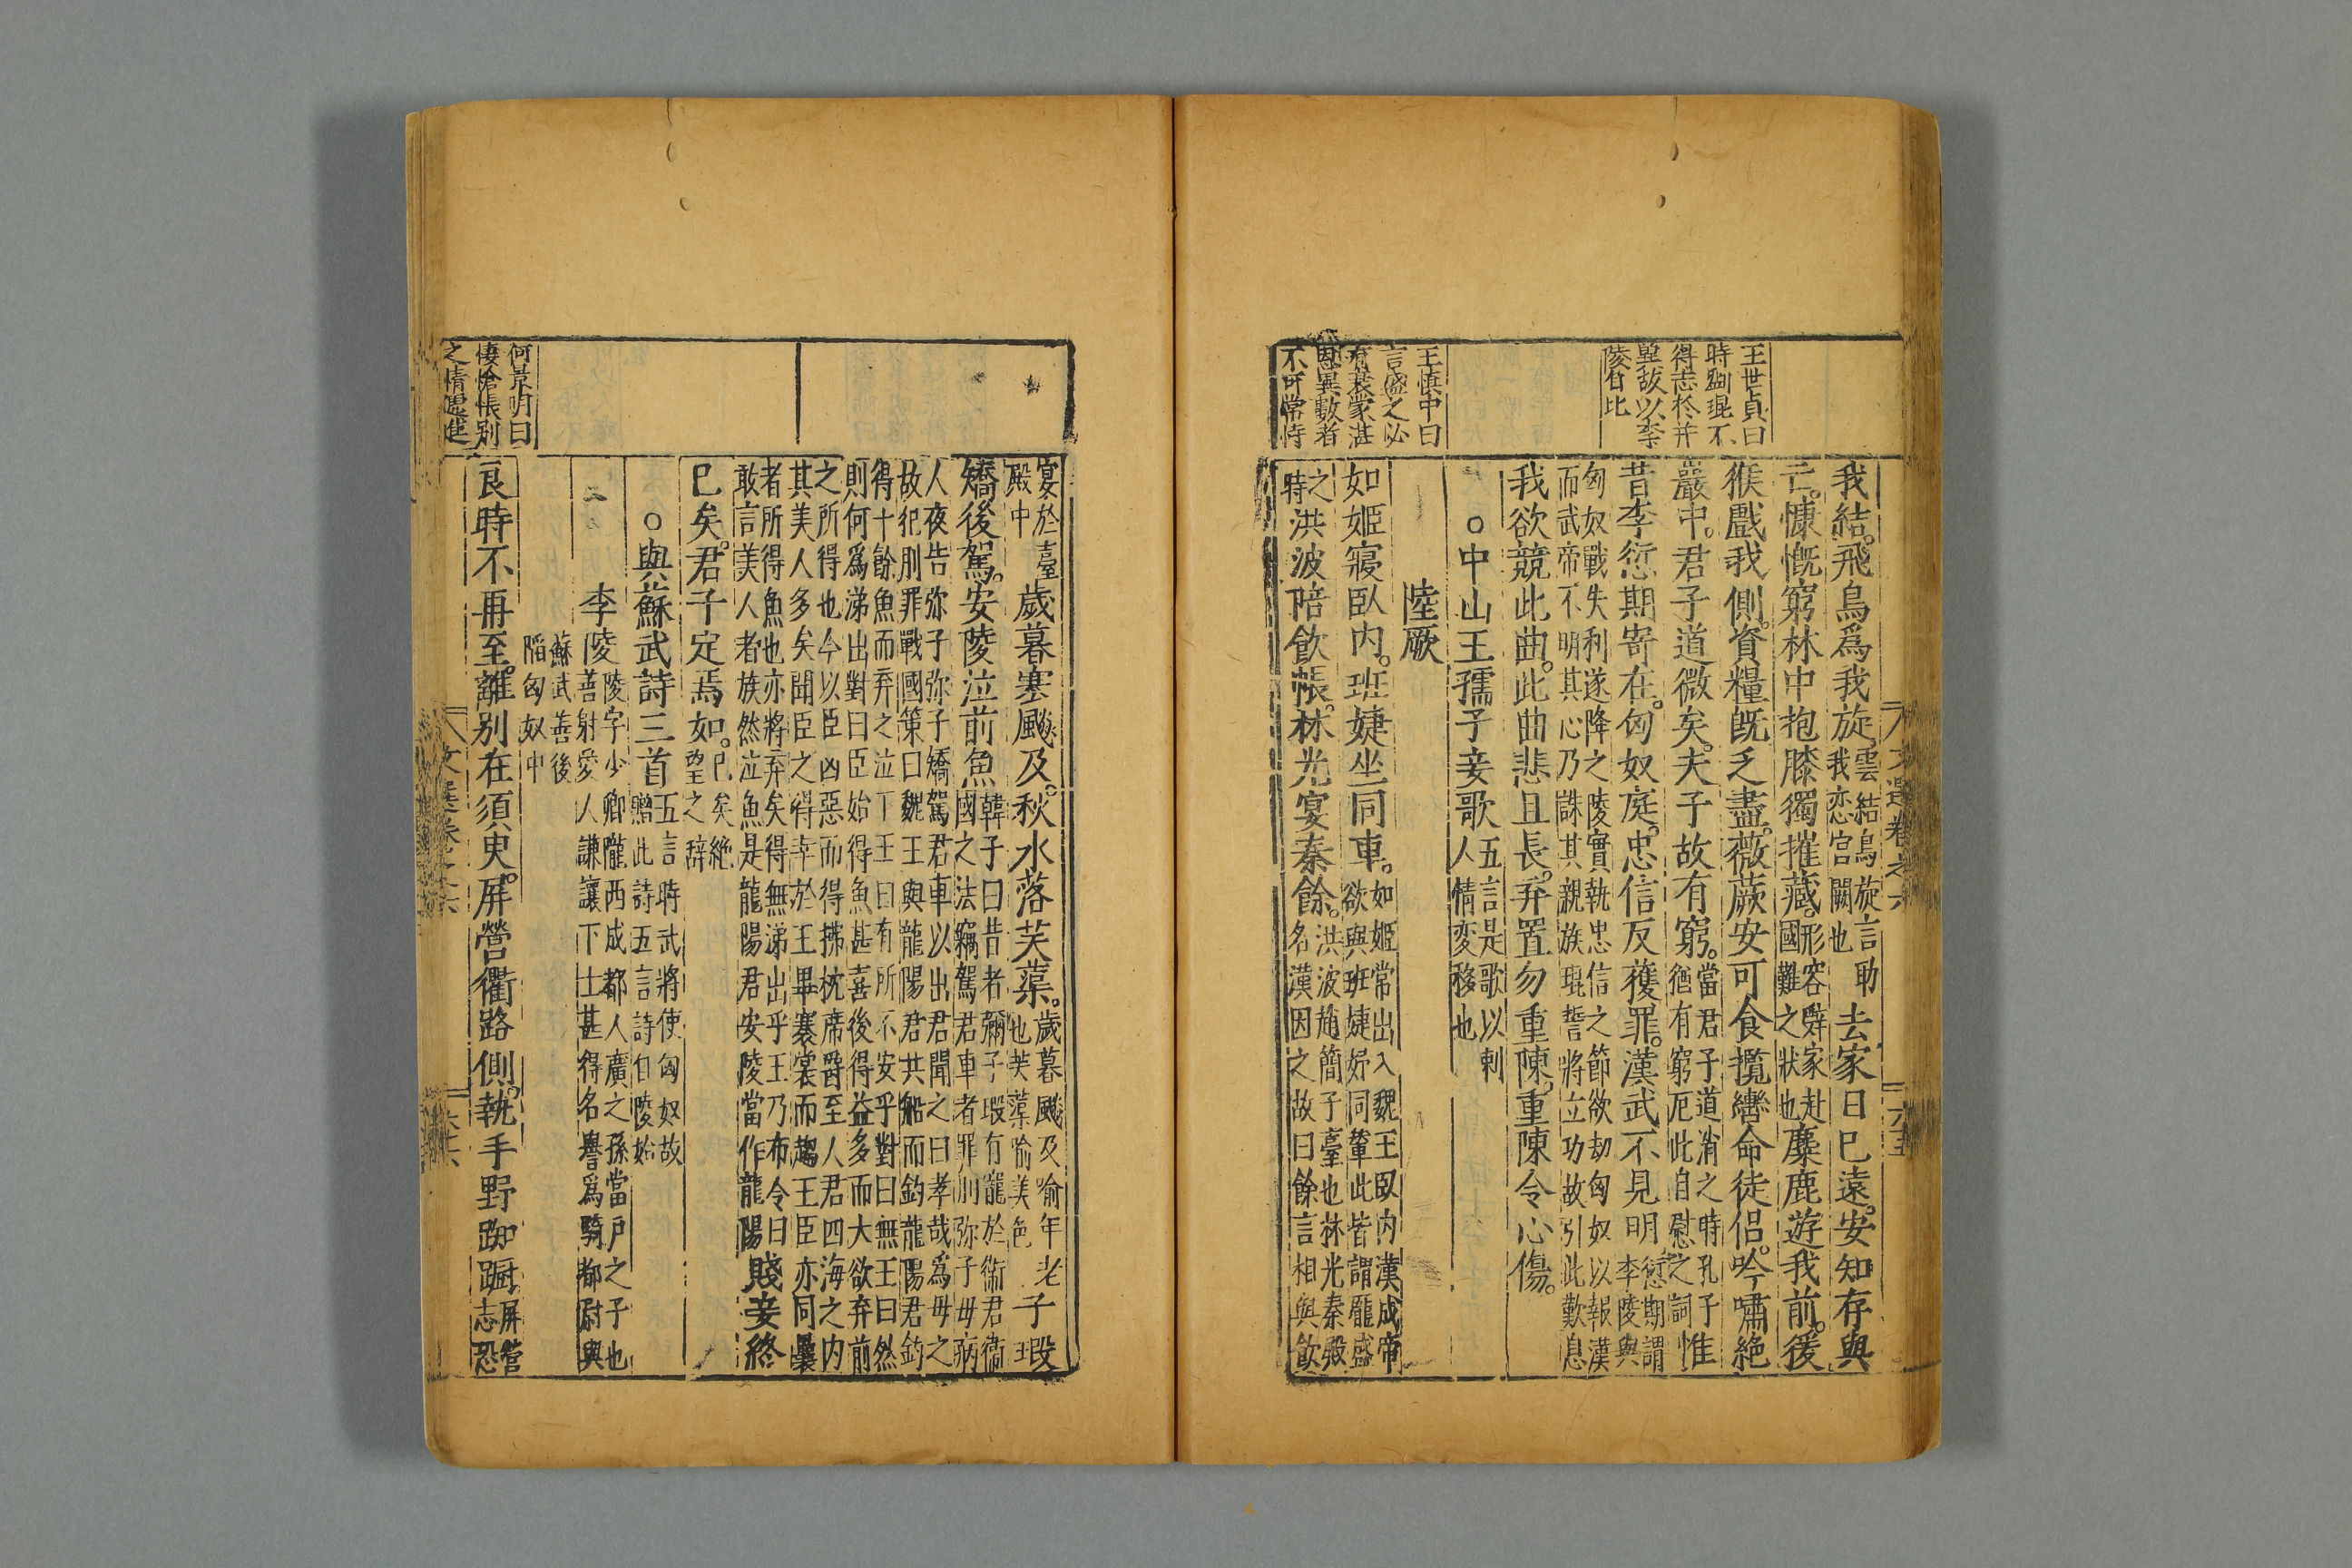 王世貞曰
時劉琨不
得志於并
異故以李
陵自比
王慎中曰
言盛之必
有衰寵湛
恩異數者
不可常恃
我結。飛鳥爲我旋。雲結鳥旋言助
我恋宫闕也
去家日巳遠。安知存與
亡。慷慨窮林中抱膝獨摧藏。形容辤家赴
國難之狀也
麋鹿遊我前。猨
猴戲我側。資糧旣乏盡。薇蕨安可食攬轡命徒侣。吟嘯絶
巖中。君子道微矣。夫子故有窮。當君子道消之時孔子
猶有窮厄此自慰之詞
惟
昔李愆期寄在。匈奴庭。忠信反獲罪。漢武不見明愆期謂
李陵與
匈奴戰失利遂降之陵實執忠信之節欲刧匈奴以報漢
而武帝不明其心乃誅其親族琨誓將立功故引此歎息
我欲競此曲。此曲悲且長。弃置勿重陳。重陳令心傷。
○中山王孺子妾歌五言是歌以刺
人情変移也
陸厥
如姬寢臥内。班婕坐同車。如姬常出入魏王臥内漢成帝
欲與班婕妤同輦此皆謂寵盛
之
時
洪波陪飲帳。林光宴秦餘。洪波趙簡子臺也林光秦殿
名漢因之故曰餘言相與飲
文選卷之六
六五
宴於臺
殿中
歲暮寒飈及。秋水落芙蕖。歲暮飈及喻年老
也芙蕖喻美色
子瑕
矯後駕。安陵泣前魚韓子曰昔者彌子瑕有寵於衛君衛
國之法竊駕君車者罪刖弥子母病
人夜告弥子弥子矯駕君車以出君聞之曰孝哉爲母之
故犯刖罪戰國策曰魏王與龍陽君共船而釣龍陽君釣
得十餘魚而弃之泣下王曰有所不安乎對曰無王曰然
則何爲涕出對曰臣始得魚甚喜後得益多而大欲弃前
之所得也今以臣凶惡而得拂枕席爵至人君四海之内
其美人多矣聞臣之得幸於王畢褰裳而趨王臣亦同曩
者所得魚也亦將弃矣得無涕出乎王乃布令曰
敢言美人者族然泣魚是龍陽君安陵當作龍陽
賤妾終
巳矣。君子定焉如。巳矣絶
望之辞
○與蘇武詩三首五言時武將使匈奴故
贈此詩五言詩自陵始
李陵陵字少卿隴西成都人廣之孫當戶之子也
善射愛人謙讓下士甚得名譽爲騎都尉與
蘇武善後
陷匈奴中
良時不再至。離别在須臾。屏營衢路側。執手野踟蹰屏營
志恐
何景明曰
悽愴悵别
之情